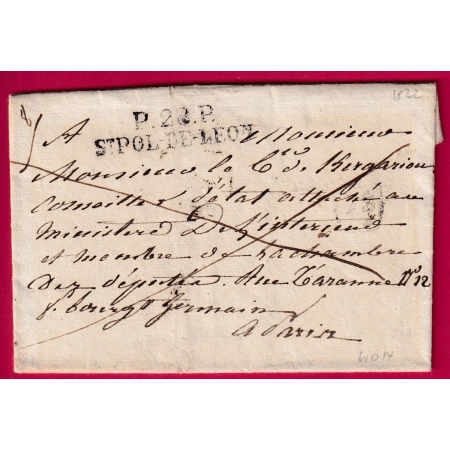 1822
P.28.P.
ST POL-DE-LEON
A Monsieur
Monsieur le Cte de Kergariou
Conseiller d'état attaché au
ministere De L'interieur
et membre de la chambre
Des députés Rue Taranne N° 12
f. bourg St Germain
A Paris